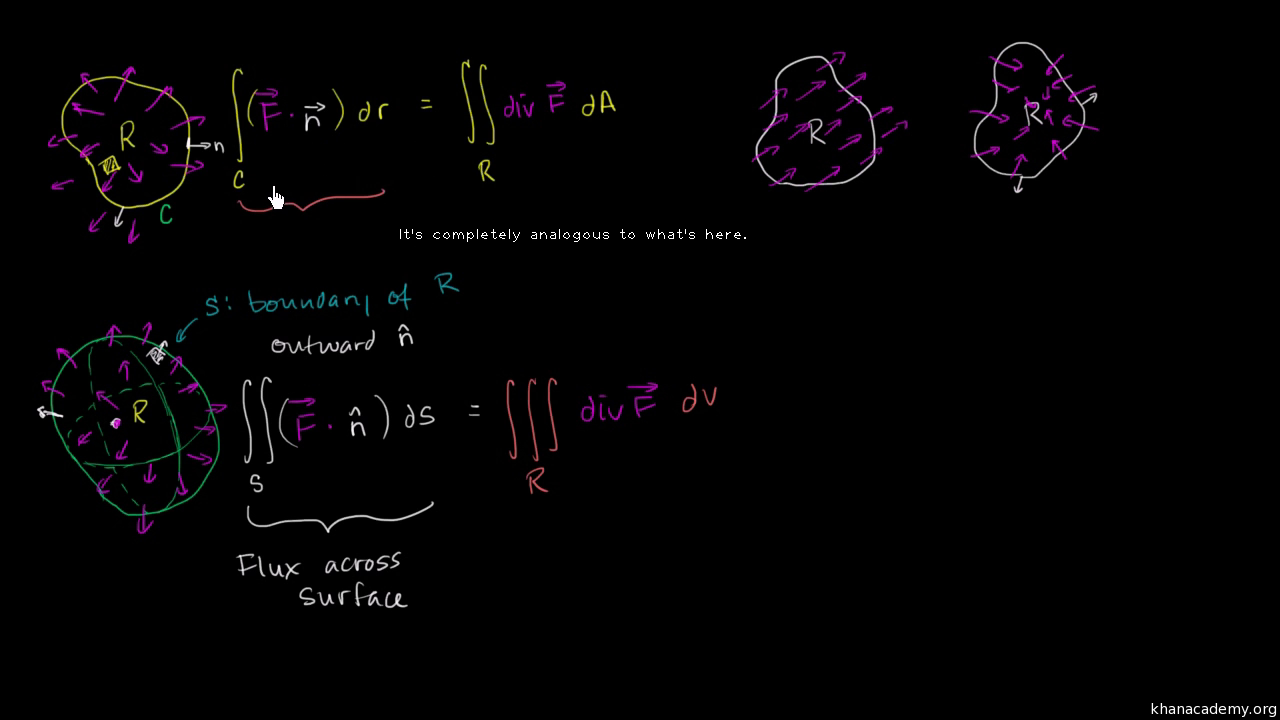 R
n
C
∫_C (F⃗ · n⃗) dr = ∬_R div F⃗ dA
R
R
It's completely analogous to what's here.
S: boundary of R
outward n̂
R
∬_S (F⃗ · n̂) dS = ∭_R div F⃗ dV
Flux across
surface
khanacademy.org